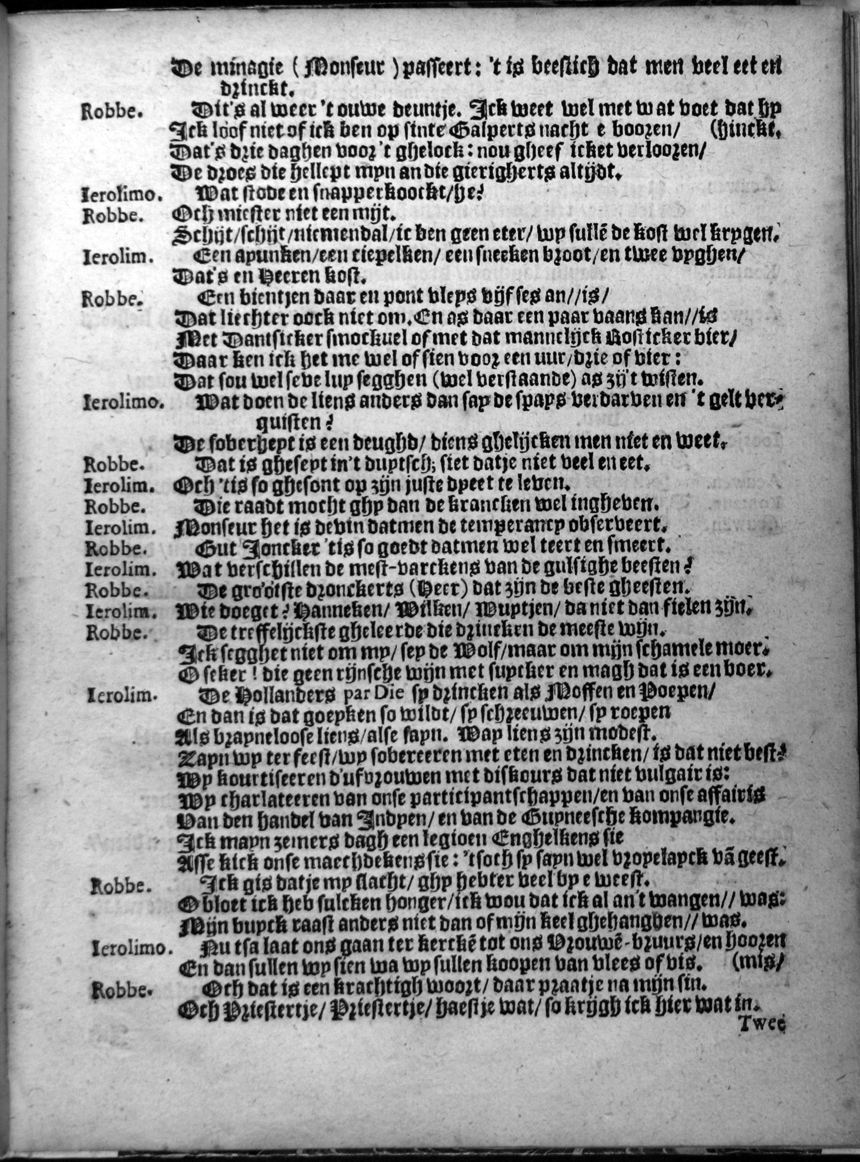 De minagie (Monseur) passeert: 't is beestich dat men veel eet en
drinckt.
Robbe. Dit's al weer 't ouwe deuntje. Ick weet wel met wat voet dat hy
Ick loof niet of ick ben op sinte Galperts nacht e booren/ (hinckt.
Dat's drie daghen voor 't ghelock: nou gheef icket verlooren/
De droes die hellept myn an die gierigherts altijdt.
Ierolimo. Wat stode en snapperkoockt/he?
Robbe. Och miester niet een mijt.
Schijt/schijt/niemendal/ic ben geen eter/ wy sullē de kost wel krygen.
Ierolim. Een ayunken/een ciepelken/ een sneeken broot/en twee vyghen/
Dat's en Heeren kost.
Robbe. Een vientjen daar en pont vleys vijf ses an//is/
Dat liechter oock niet om. En as daar een paar vaans kan//is
Met Dantsicker smockuel of met dat mannelijck Rosticker bier/
Daar ken ick het me wel of sien voor een uur/drie of vier:
Dat sou wel seve luy segghen (wel verstaande) as zij't wisten.
Ierolimo. Wat doen de liens anders dan say de spays verdarven en 't gelt ver-
quisten?
De soberheyt is een deughd/ diens ghelijcken men niet en weet.
Robbe. Dat is gheseyt in't duytsch; siet datje niet veel en eet.
Ierolim. Och 'tis so ghesont op zijn juste dyeet te leven.
Robbe. Die raadt mocht ghy dan de krancken wel ingheven.
Ierolim. Monseur het is devin datmen de temperancy observeert.
Robbe. Gut Joncker 'tis so goedt datmen wel teert en smeert.
Ierolim. Wat verschillen de mest-varckens van de gulsighe beesten?
Robbe. De grootste dronckerts (Heer) dat zijn de beste gheesten.
Ierolim. Wie doeget? Hanneken/ Wilken/ Wuptjen/ da niet dan fielen zijn.
Robbe. De treffelijckste gheleerde die drincken de meeste wijn.
Ick segghet niet om my/ sey de Wolf/maar om mijn schamele moer.
O seker! die geen rijnsche wijn met suycker en magh dat is een boer.
Ierolim. De Hollanders par Die sy drincken als Moffen en Poepen/
En dan is dat goepken so wildt/ sy schreeuwen/ sy roepen
Als brayneloose liens/alse sayn. Way liens zijn modest.
Zayn wy ter feest/wy sobereeren met eten en drincken/ is dat niet best?
Wy kourtiseeren d'ufvrouwen met diskours dat niet vulgair is:
Wy charlateeren van onse participantschappen/en van onse affairis
Van den handel van Indyen/ en van de Guyneesche kompangie.
Ick mayn zemers dagh een legioen Enghelkens sie
Asse kick onse maechdekens sie: 'tsoch sy sayn wel vroyelayck vā geest.
Robbe. Ick gis datje my slacht/ ghy hebter veel by e weest.
O bloet ick heb sulcken honger/ick wou dat ick al an't wangen// was:
Mijn buyck raast anders niet dan of mijn keel ghehanghen// was.
Ierolimo. Nu tsa laat ons gaan ter kerckē tot ons Vrouwē-bruurs/en hooren
En dan sullen wy sien wa wy sullen koopen van vlees of vis. (mis/
Robbe. Och dat is een krachtigh woort/ daar praatje na mijn sin.
Och Priestertje/ Priestertje/ haest je wat/ so krijgh ick hier wat in.
Twee